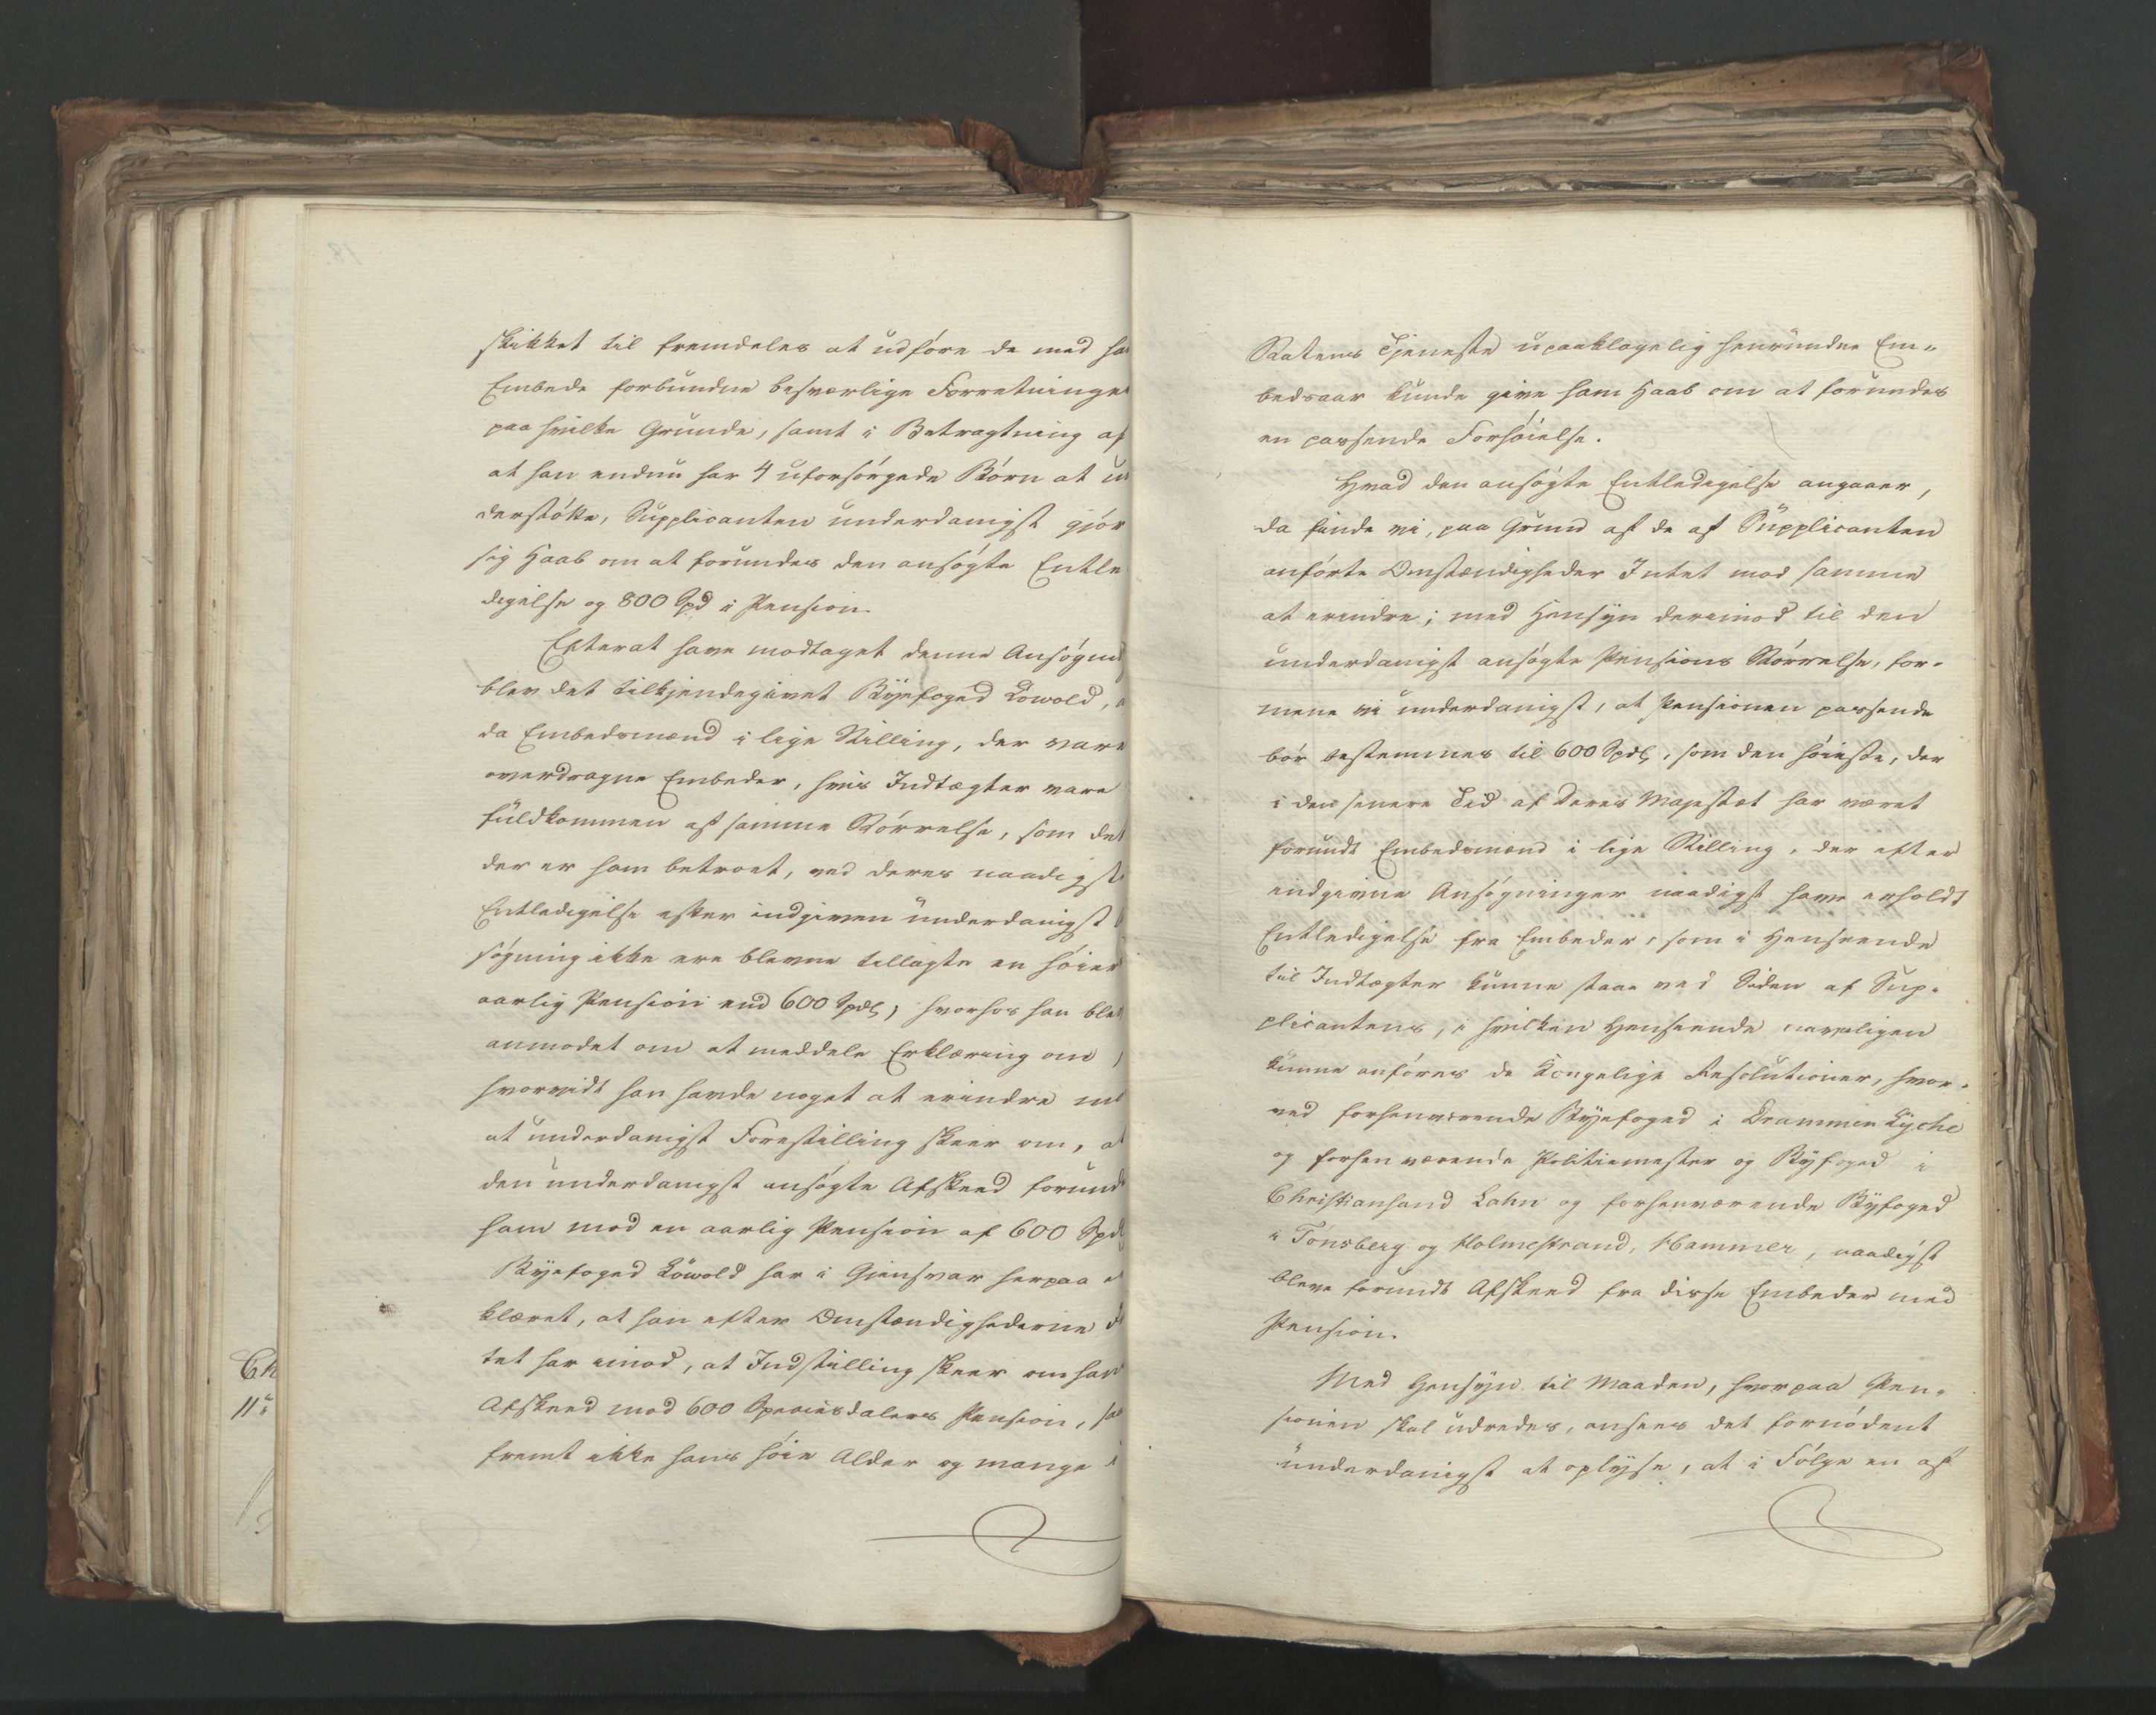 skikket til fremdeles at udføre de med ha
Embede forbundne besværlige Forretninger
paa hvilke Grunde, samt i Betragtning af
at han endnu har 4 uforsørgede Børn at un
derstøtte, Supplicanten underdanigst gjør
sig Haab om at forundes den ansøgte Entle
digelse og 800 Spd i Pension.
Efterat have modtaget denne Ansøgning
blev det tilkjendegivet Byefoged Löwold,
da Embedsmænd i lige Stilling, der vare
overdragne Embeder, hvis Indtægter vare
fuldkommen af samme Størrelse, som det
der er ham betroet, ved deres naadigst
Entledigelse efter indgiven underdanigst
søgning ikke ere blevne tillagte en høier
aarlig Pension end 600 Spdlr, hvorhos han blev
anmodet om at meddele Erklæring om,
hvorvidt han havde noget at erindre mod
at underdanigst Forestilling skeer om, at
den underdanigst ansøgte Afskeed forund
ham mod en aarlig Pension af 600 Spdl
Byefoged Löwold har i Giensvar herpaa er
klæret, at han efter Omstændighederne In
tet har imod, at Indstilling skeer om hans
Afskeed mod 600 Speciesdalers Pension, saa
fremt ikke hans høie Alder og mange i
Ch
11
Statens Tjeneste upaaklagelig henrundne Em-
bedsaar kunde give ham Haab om at forundes
en passende Forhøielse.
Hvad den ansøgte Entledigelse angaaer,
da finde vi, paa Grund af de af Supplicanten
anførte Omstændigheder Intet mod samme
at erindre; med Hensyn derimod til den
underdanigst ansøgte Pensions Størrelse, for-
mene vi underdanigst, at Pensionen passende
bør bestemmes til 600 Spdlr, som den høieste, der
i den senere Tid af Deres Majestæt har været
forundt Embedsmænd i lige Stilling, der efter
indgivne Ansøgninger naadigst have erholdt
Entledigelse fra Embeder, som i Henseende
til Indtægter kunne staae ved Siden af Sup-
plicantens, i hvilken Henseende navnligen
kunne anføres de Kongelige Resolutioner, hvor-
ved forhenværende Byefoged i Drammen Lyche
og forhenværende Politiemester og Byfoged i
Christiansand Lahn og forhenværende Byfoged
i Tønsberg og Holmestrand, Hammer, naadigst
bleve forundt Afskeed fra disse Embeder med
Pension.
Med Hensyn til Maaden, hvorpaa Pen-
sionen skal udredes, ansees det fornødent
underdanigst at oplyse, at i Følge en af